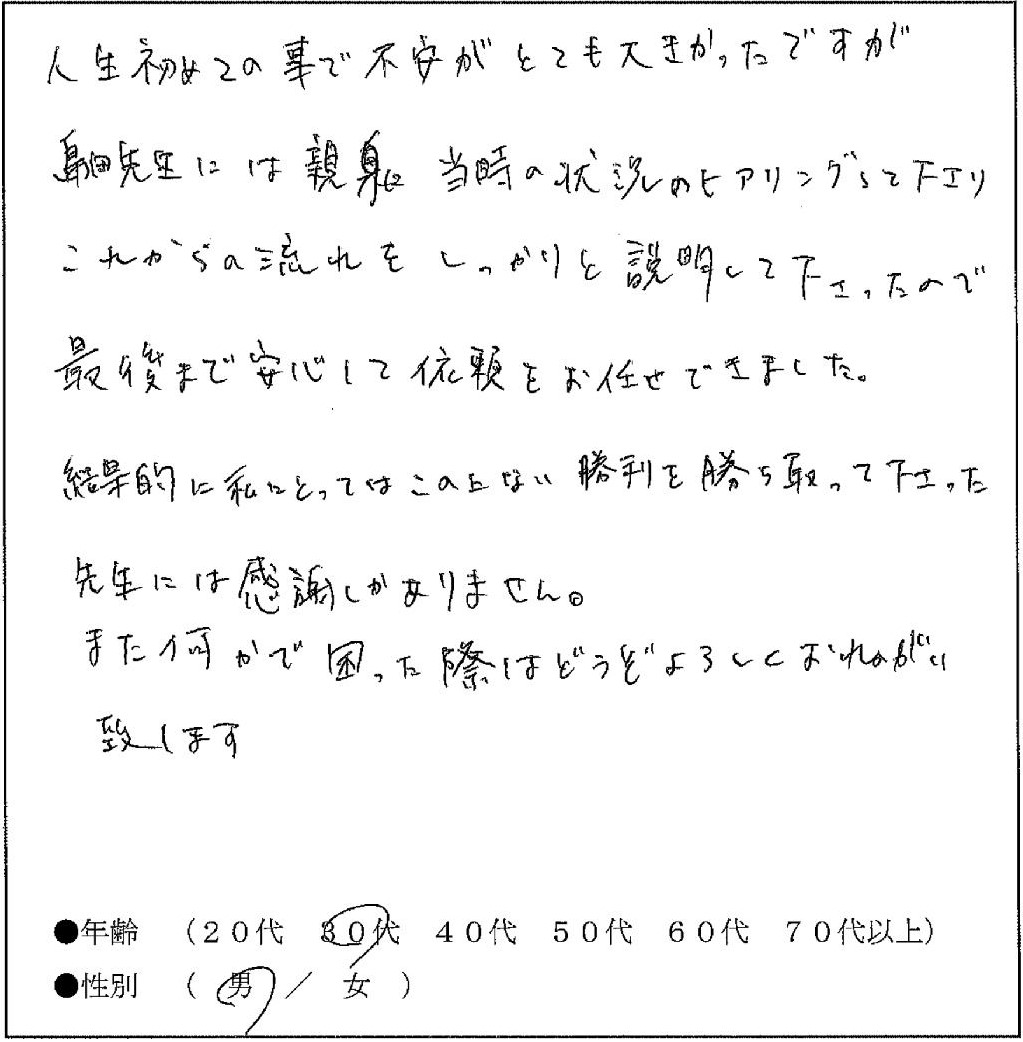 人生初めての事で不安がとても大きかったですが
先生には親身に当時の状況のヒアリングして下さり
これからの流れをしっかりと説明して下さったので
最後まで安心して依頼をお任せできました。
結果的に私にとってはこの上ない勝利を勝ち取って下さった
先生には感謝しかありません。
また何かで困った際はどうぞよろしくおねがい
致します
●年齢 （２０代 ３０代 ４０代 ５０代 ６０代 ７０代以上）
●性別 （ 男 ／ 女 ）